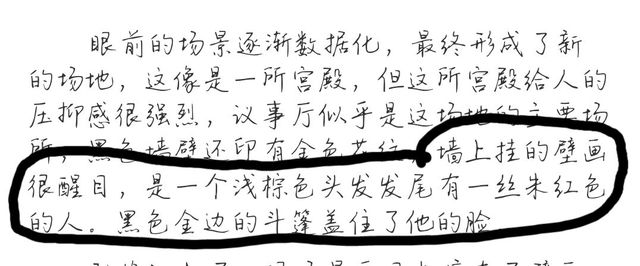 眼前的场景逐渐数据化，最终形成了新
的场地，这像是一所宫殿，但这所宫殿给人的
压抑感很强烈，议事厅似乎是这场地的主要场
所，黑色墙壁还印有金色，墙上挂的壁画
很醒目，是一个浅棕色头发发尾有一丝朱红色
的人。黑色金边的斗篷盖住了他的脸